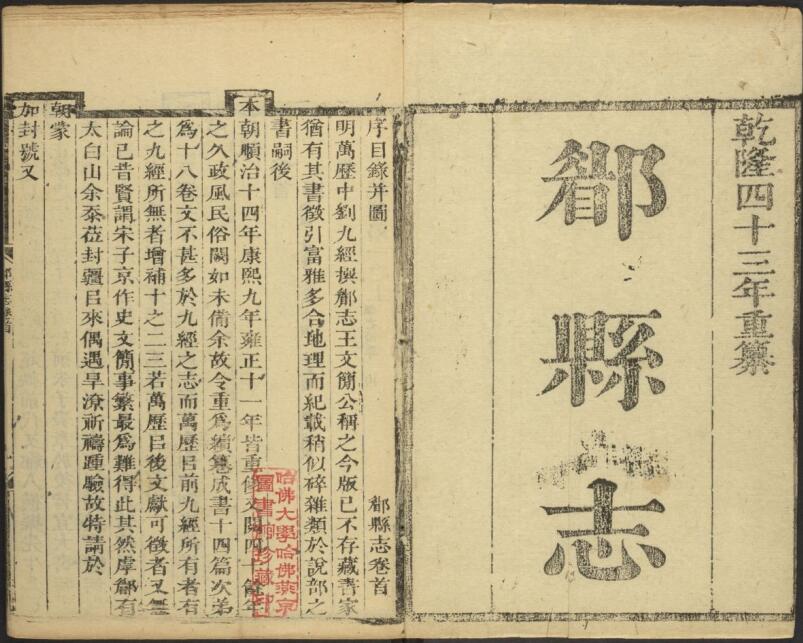 乾隆四十三年重纂
郿縣志
序目錄并圖 郿縣志卷首
明萬歷中劉九經撰郿志王文簡公稱之今版已不存藏書家
猶有其書徵引富雅多合地理而紀載稍似碎雜類於說部之
書嗣後
本朝順治十四年康熙九年雍正十一年皆重修文闕四十餘年
之久政風民俗闕如未備余故令重爲纂成書十四篇次弟
爲十八卷文不甚多於九經之志而萬歷㠯前九經所有者有
之九經所無者增補十之二三若萬歷㠯後文獻可徵者又無
論已昔賢謂宋子京作史文簡事繁最爲難得此其然虖郿有
太白山余忝莅封疆㠯來偶遇旱潦祈禱踵驗故特請於
朝蒙
加封號又
郿縣志卷首
哈佛大學哈佛燕京
圖書館珍藏印